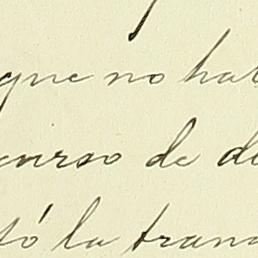 que no ha
curso de d
tó la tran